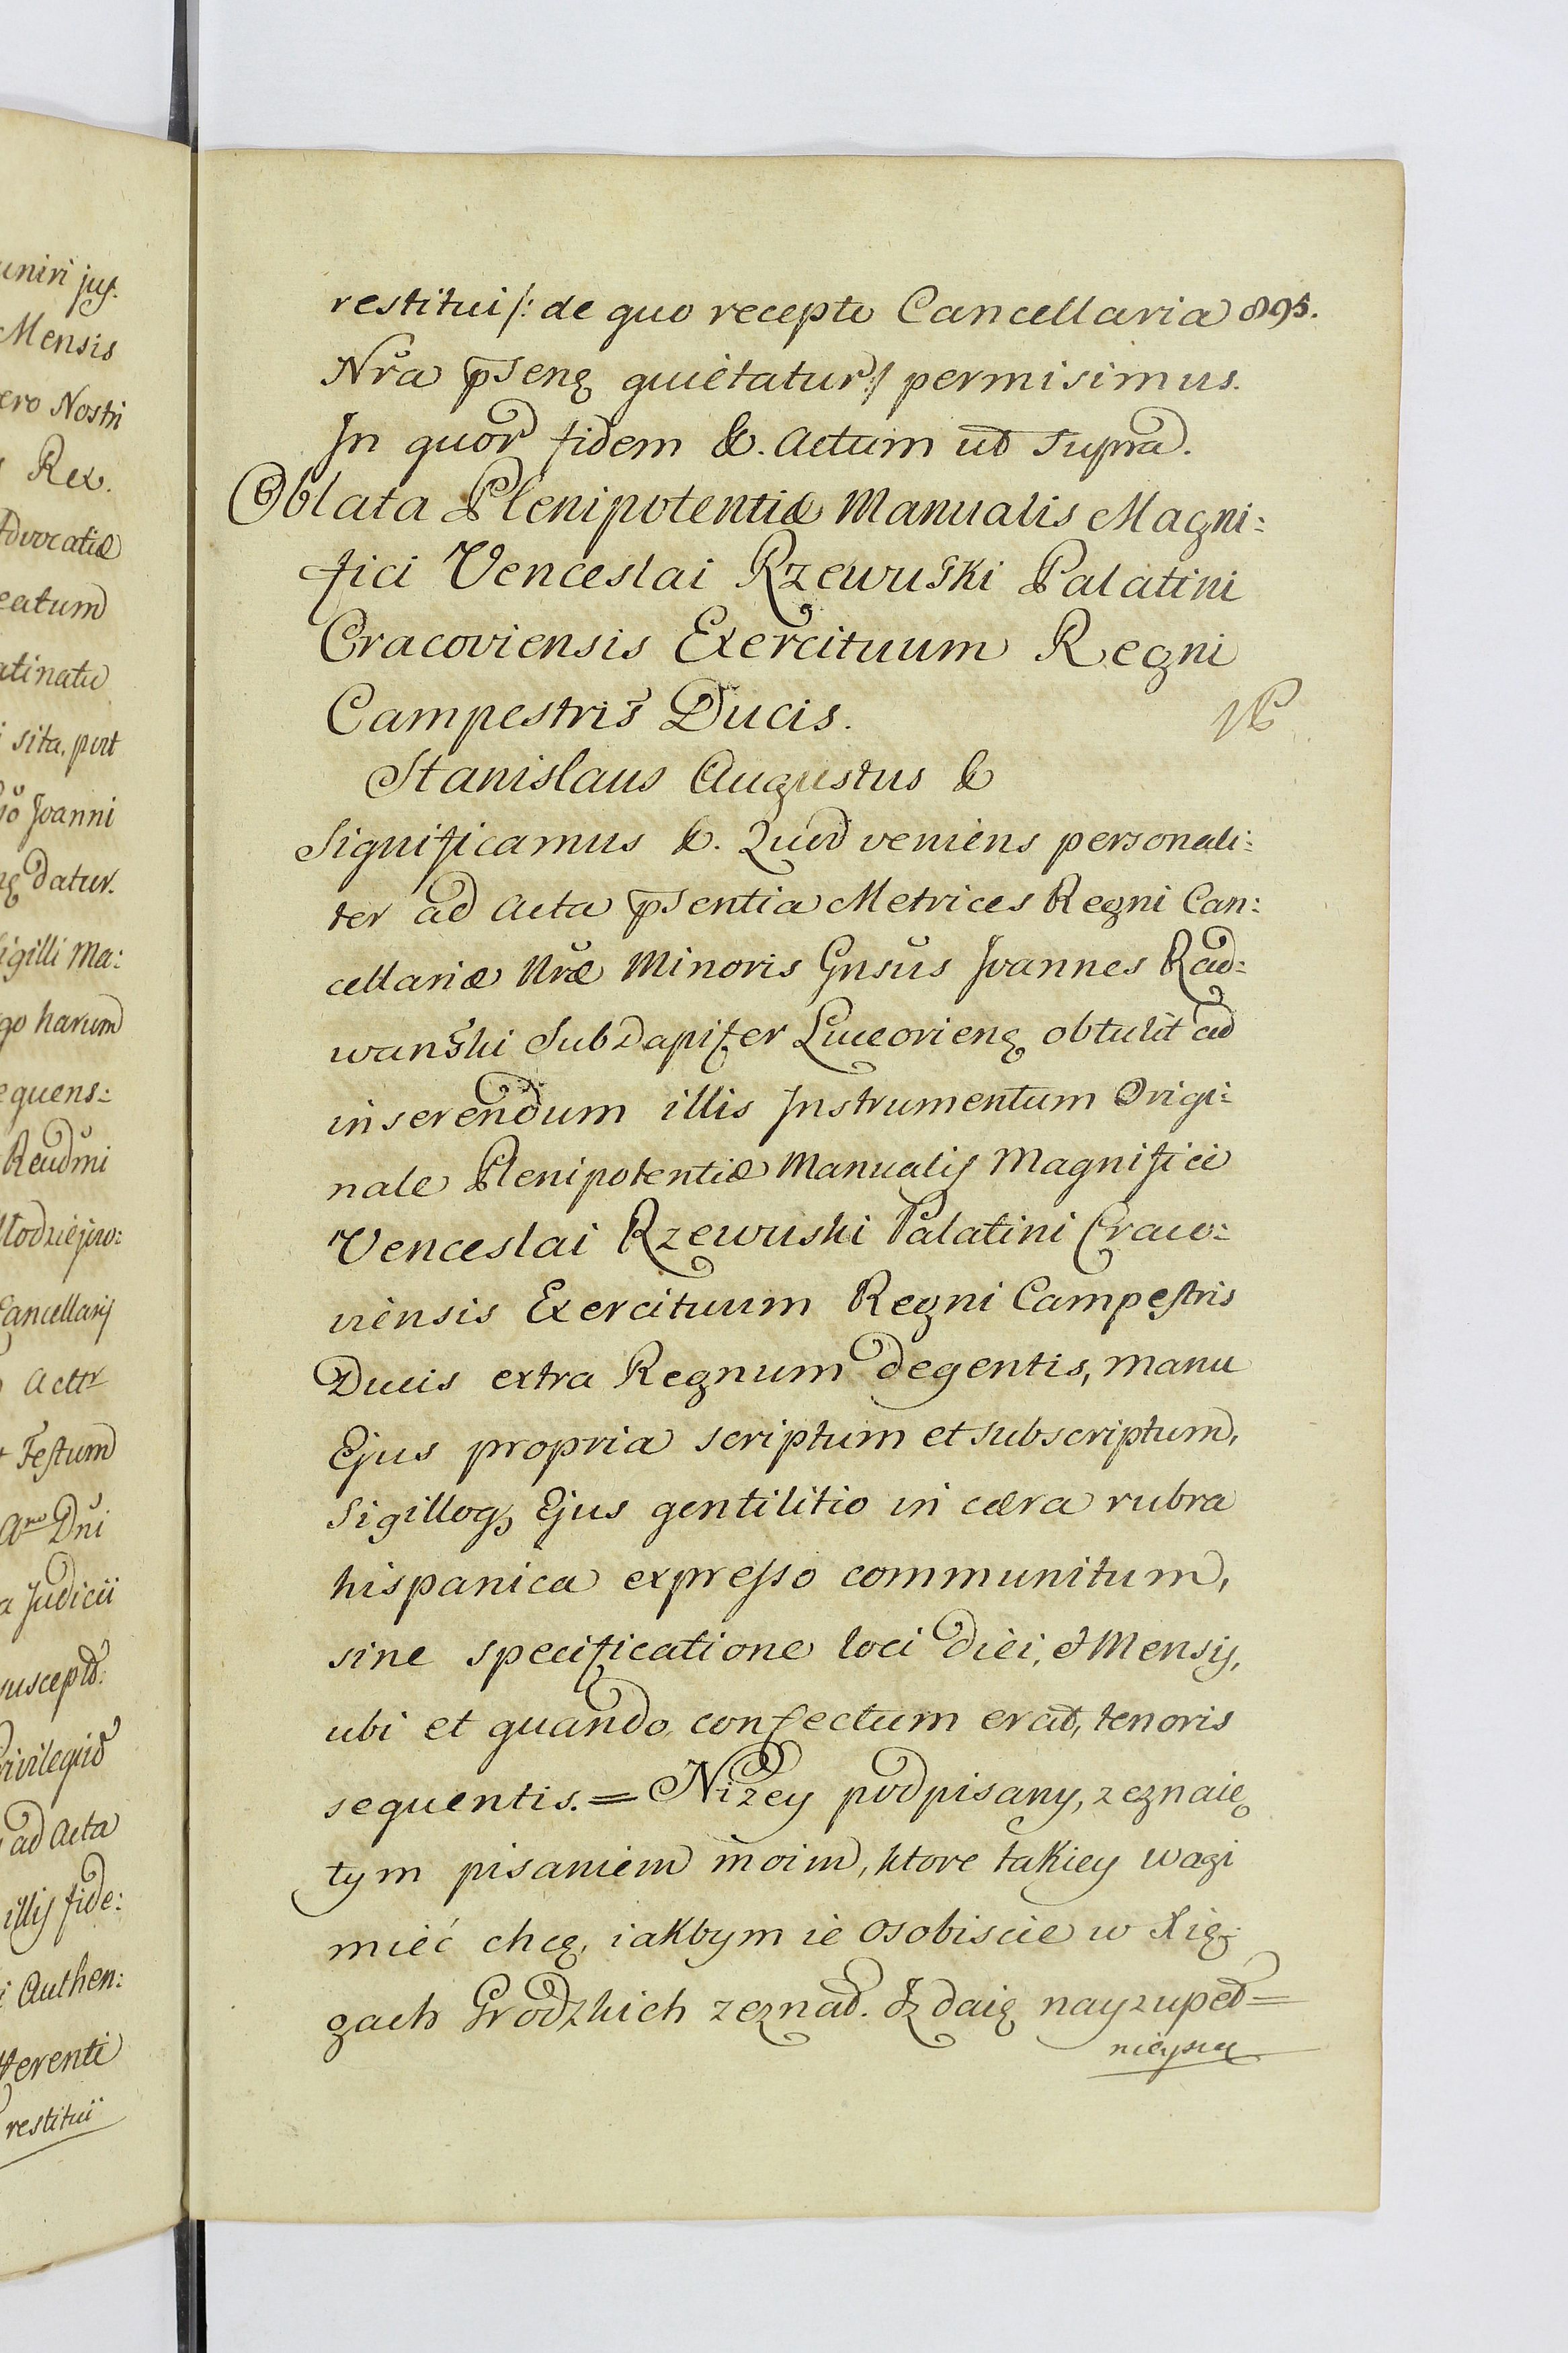 uniri jus.
Mensis
ero Nostri
Rex.
Advocatiæ
eatum
atinatu
sita, pert
Joanni
datur.
igilli Ma:
go harum
equens:
Reudmi
łodziejow:
Cancellarij
Actor
Festum
Ano Dni
a Judicii
suscept:
rivilegio
ad Acta
illis fide:
i Authen:
fferenti
restitui
restitui /: de quo recepto Cancellaria 895.
Nra psens quietatur :/ permisimus.
In quor fidem &. Actum ut supra.
Oblata Plenipotentiæ Manualis Magni:
fici Venceslai Rzewuski Palatini
Cracoviensis Exercituum Regni
Campestris Ducis.
Stanislaus Augustus &
Significamus &. Quod veniens personali:
ter ad Acta psentia Metrices Regni Can:
cellariæ Nræ Minoris Gnsus Joannes Rad:
wanski SubDapifer Luceoriens obtulit ad
inserendum illis Instrumentum Origi:
nale Plenipotentiæ Manualis Magnifici
Venceslai Rzewuski Palatini Craco:
viensis Exercituum Regni Campestris
Ducis extra Regnum degentis, manu
Ejus propria scriptum et subscriptum,
Sigilloq Ejus gentilitio in cæra rubra
hispanica expresso communitum,
sine specificatione loci diei, et Mensis,
ubi et quando confectum erat, tenoris
sequentis. = Nizey podpisany, zeznaię
tym pisaniem moim, ktore takiey wagi
mieć chcę, iakbym ie osobiscie w Xię:
gach Grodzkich zeznał. Iz daię nayzupeł=
nieyszą